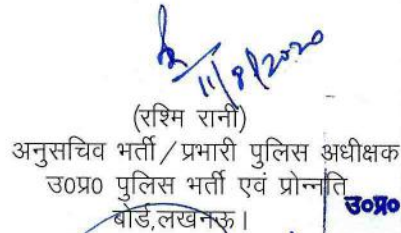 11/8/2020
(रश्मि रानी)
अनुसचिव भर्ती / प्रभारी पुलिस अधीक्षक
उ०प्र० पुलिस भर्ती एवं प्रोन्नति
बोर्ड,लखनऊ।
उ०प्र०